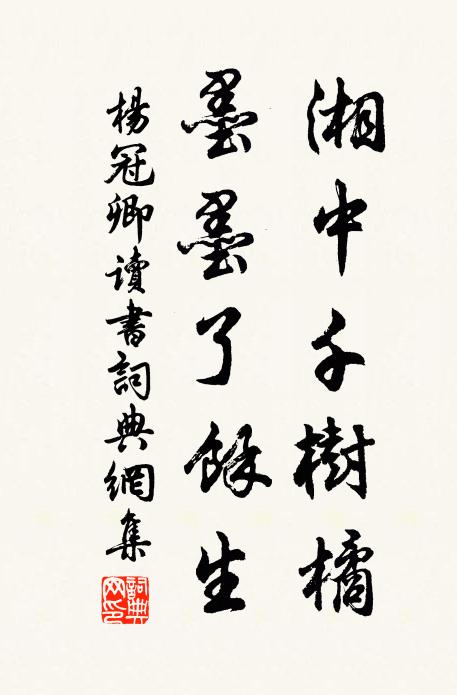 湘中千樹橘
墨墨了餘生
楊冠卿讀書詞典網集
詞典網印